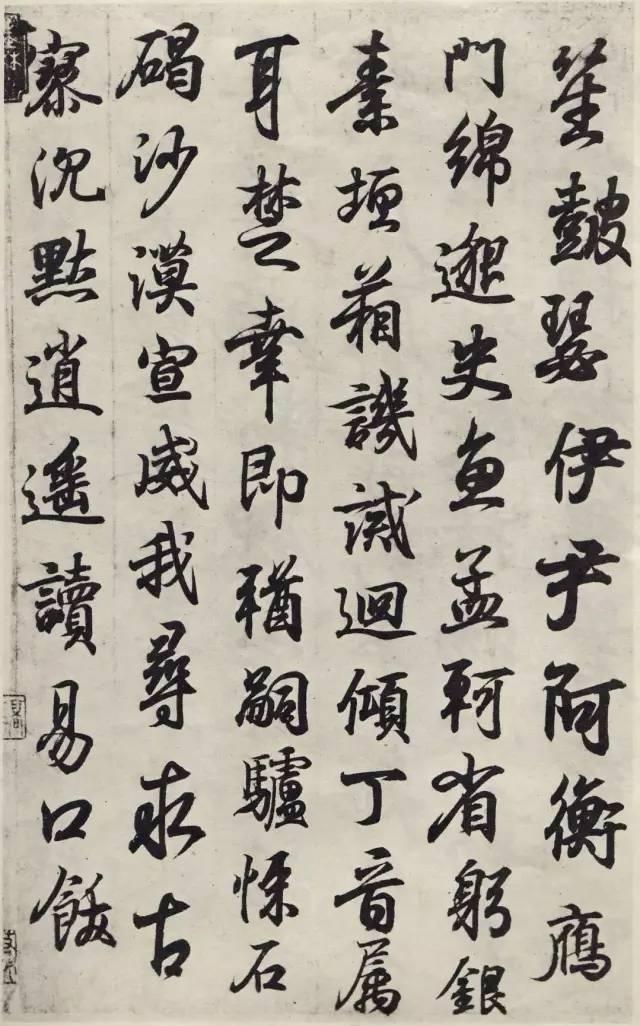 笙鼓瑟伊尹阿衡鴈
門綿邈史魚孟軻省躬銀
素垣葙譏誡迴傾丁音属
耳楚幸即猶嗣驢悚石
碣沙漠宣威我尋求古
寮沉點逍遥讀易口飯